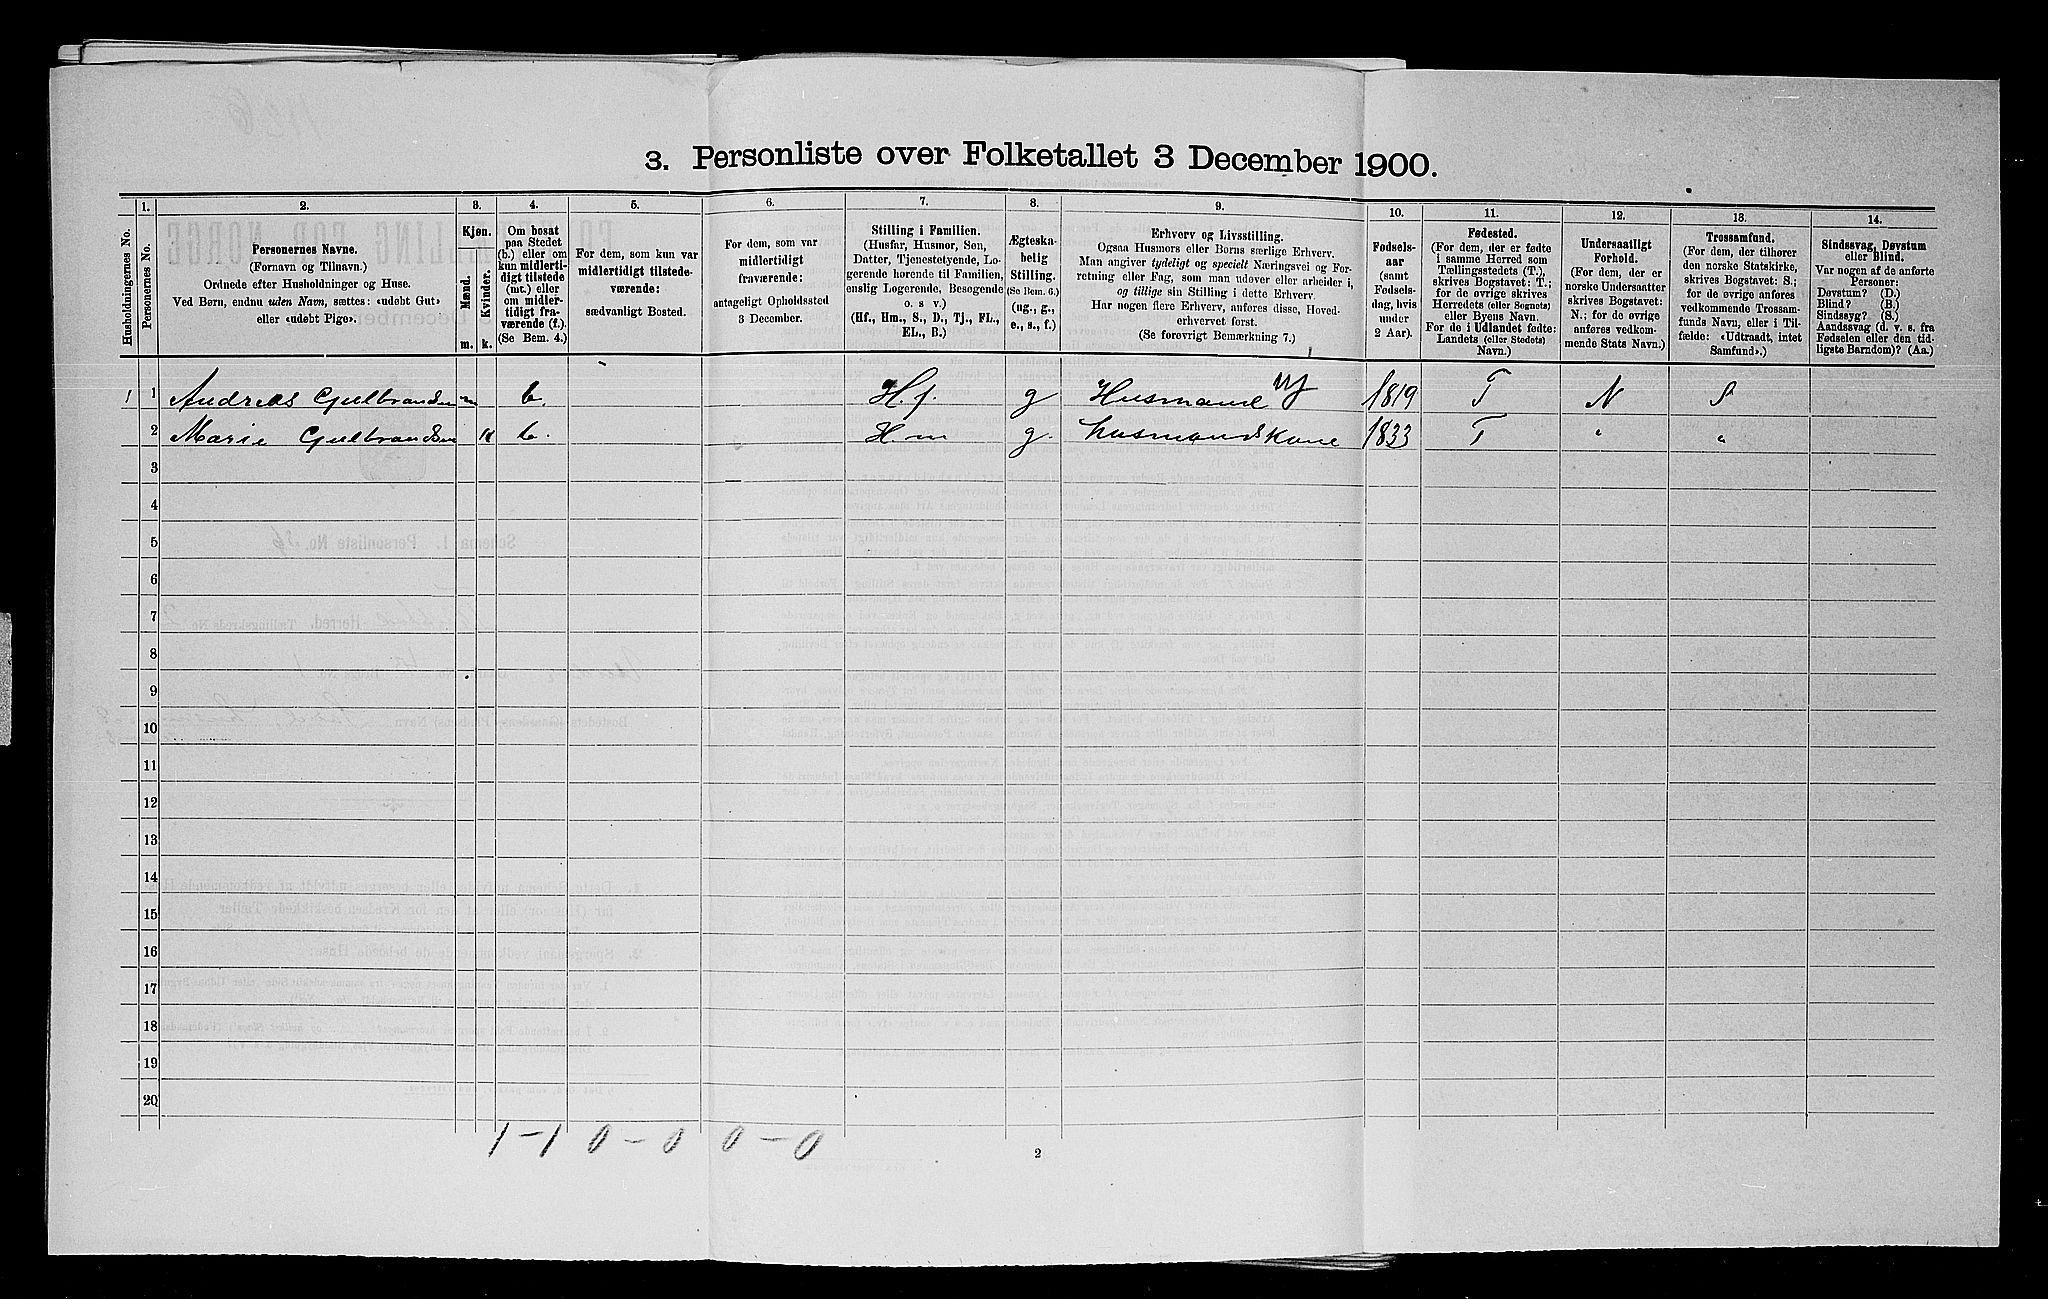 3. Personliste over Folketallet 3 December 1900.
Husholdningernes No.
1.
Personernes No.
2.
Personernes Navne.
(Fornavn og Tilnavn.)
Ordnede efter Husholdninger og Huse.
Ved Børn, endnu uden Navn, sættes: «udøbt Gut»
eller «udøbt Pige».
3.
Kjøn.
Mænd.
Kvinder.
m. k.
4.
Om bosat
paa Stedet
(b.) eller om
kun midlerti-
digt tilstede
(mt.) eller
om midler-
tidigt fra-
værende (f.).
(Se Bem. 4.)
5.
For dem, som kun var
midlertidigt tilstede-
værende:
sædvanligt Bosted.
6.
For dem, som var
midlertidigt
fraværende:
antageligt Opholdssted
3 December.
7.
Stilling i Familien.
(Husfar, Husmor, Søn,
Datter, Tjenestetyende, Lo-
gerende hørende til Familien,
enslig Logerende, Besøgende
o. s v.)
(Hf., Hm., S., D., Tj., FL.,
EL., B.)
8.
Ægteska-
belig
Stilling.
(Se Bem. 6.)
(ug., g.,
e., s., f.)
9.
Erhverv og Livsstilling.
Ogsaa Husmors eller Børns særlige Erhverv.
Man angiver tydeligt og specielt Næringsvei og For-
retning eller Fag, som man udøver eller arbeider i,
og tillige sin Stilling i dette Erhverv.
Har nogen flere Erhverv, anføres disse, Hoved-
erhvervet først.
(Se forøvrigt Bemærkning 7.)
10.
Fødsels-
aar
(samt
Fødsels-
dag, hvis
under
2 Aar).
11.
Fødested.
(For dem, der er fødte
i samme Herred som
Tællingsstedets (T.),
skrives Bogstavet: T.;
for de øvrige skrives
Herredets (eller Sognets)
eller Byens Navn.
For de i Udlandet fødte:
Landets (eller Stedets)
Navn.)
12.
Undersaatligt
Forhold.
(For dem, der er
norske Undersaatter
skrives Bogstavet:
N.; for de øvrige
anføres vedkom-
mende Stats Navn.)
13.
Trossamfund.
(For dem, der tilhører
den norske Statskirke,
skrives Bogstavet: S.;
for de øvrige anføres
vedkommende Trossam-
funds Navn, eller i Til-
fælde: «Udtraadt, intet
Samfund».)
14.
Sindssvag, Døvstum
eller Blind.
Var nogen af de anførte
Personer:
Døvstum? (D.)
Blind? (B.)
Sindssyg? (S.)
Aandssvag (d. v. s. fra
Fødselen eller den tid-
ligste Barndom)? (Aa.)
1 1 Andreas Gulbrandsen m b. H. f. g Husmand 1819 T N S
2 Marie Gulbrandsen k b. Hm g. husmandskone 1833 T " "
3
4
5
6
7
8
9
10
11
12
13
14
15
16
17
18
19
20
1 – 1 0 – 0 0 – 0
2